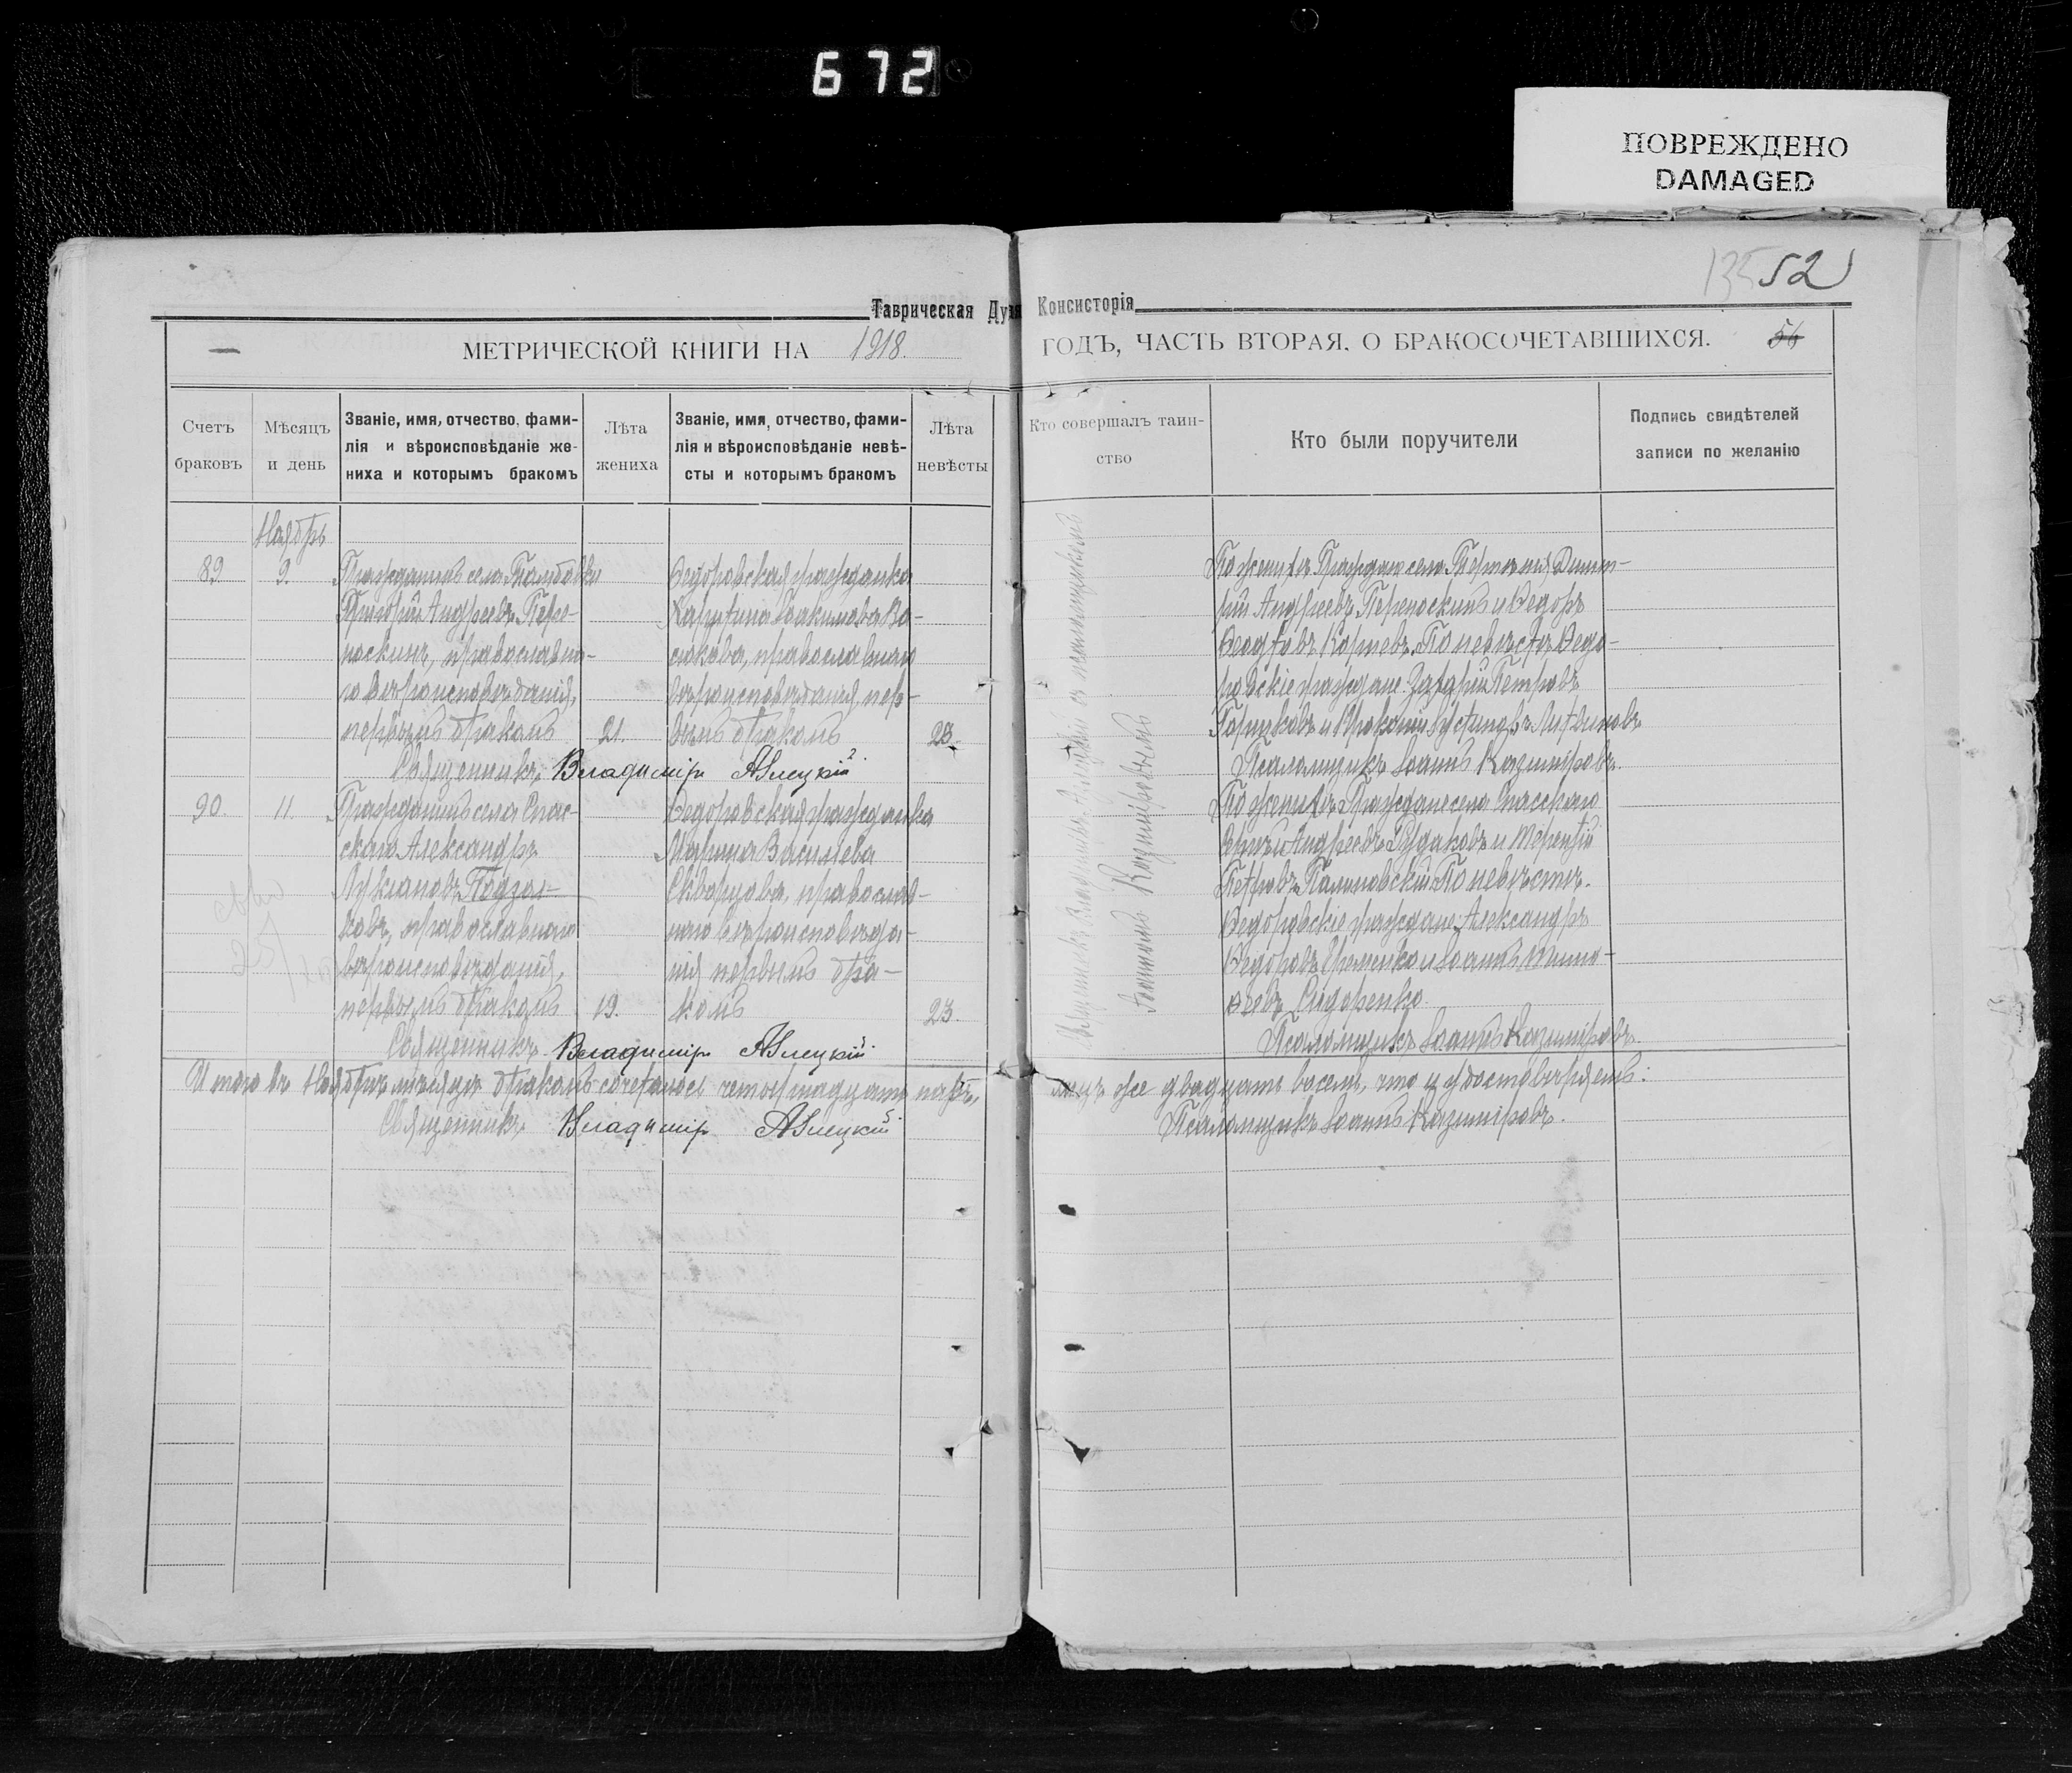 672
ПОВРЕЖДЕНО
DAMAGED
52
Таврическая Дух Консисторія
МЕТРИЧЕСКОЙ КНИГИ НА 1918.
ГОДЪ, ЧАСТЬ ВТОРАЯ, О БРАКОСОЧЕТАВШИХСЯ.
56
Счетъ браковъ
Мѣсяцъ и день
Званіе, имя, отчество, фами-
лія и вѣроисповѣданіе же-
ниха и которымъ бракомъ
Лѣта жениха
Званіе, имя, отчество, фами-
лія и вѣроисповѣданіе невѣ-
сты и которымъ бракомъ
Лѣта невѣсты
Кто совершалъ таин-
ство
Кто были поручители
Подпись свидѣтелей
записи по желанію
Ноябрь
89
9.
Гражданинъ села
Григорій Андреевъ Пере-
носкинъ, православна-
го вѣроисповѣданія,
первымъ бракомъ
21.
Ѳедоровская гражданка
Харитина Іоакимова
православнаго
вѣроисповѣданія, пер-
вымъ бракомъ
23.
По женихѣ: Граждане села Дмит-
рій Андреевъ Переноскинъ и Ѳедоръ
По невѣстѣ: Ѳедо-
ровскіе граждане: Захарій Петровъ
Горшковъ и Прокопій Устиновъ Литвиновъ
Священникъ Владимір Алецкій
Псаломщикъ Іоаннъ Казиміровъ.
90.
11.
Гражданинъ села Спас-
скаго Александръ
Лукіановъ
православнаго
вѣроисповѣданія,
первымъ бракомъ
19.
Ѳедоровская гражданка
Марина Васильева
Скворцова, православ-
наго вѣроисповѣда-
нія, первымъ бра-
комъ
23.
По женихѣ: Граждане села Спасскаго
Андреевъ Рудаковъ и Терентій
Петровъ По невѣстѣ:
Ѳедоровскіе граждане: Александръ
Ѳедоровъ Еременко и Іоаннъ Тимо-
ѳеевъ Сидоренко.
Священникъ Владимір Алецкій
Псаломщикъ Іоаннъ Казиміровъ.
Священникъ Владиміръ Алецкій съ псаломщикомъ
Іоанномъ Казиміровымъ
Итого въ Ноябрѣ мѣсяцѣ бракомъ сочеталось четырнадцать паръ,
лицъ же двадцать восемь, что и удостовѣряемъ:
Священникъ Владимір Алецкій
Псаломщикъ Іоаннъ Казиміровъ.